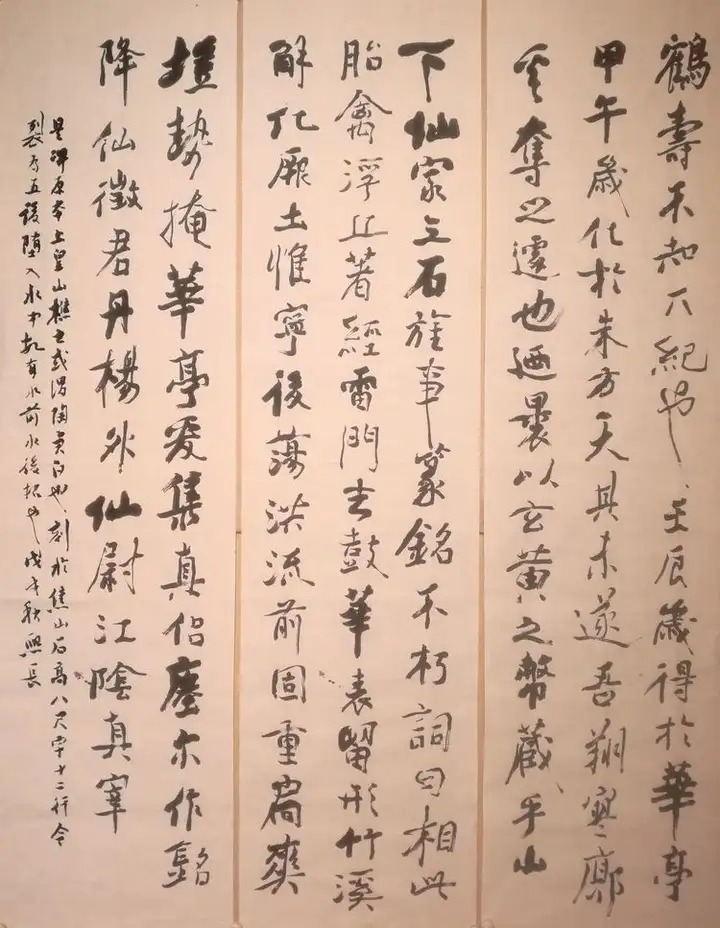 鶴壽不知其紀也壬辰歲得於華亭
甲午歲化於朱方天其未遂吾翔寥廓
奚奪之遽也迺裹以玄黃之幣藏乎山
下仙家立石旌事篆銘不朽詞曰相此
胎禽浮丘著經雷門去鼓華表留形竹溪
解化厥土惟寧後蕩洪流前固重扃爽
塏勢掩華亭爰集真侶瘞尔作銘
降仙徵君丹楊外仙尉江陰真宰
是碑原本上皇山樵書或謂陶貞白也刻於焦山石高八尺字十二行今
裂為五後墮入水中故有水前水後拓也戊午秋熙長